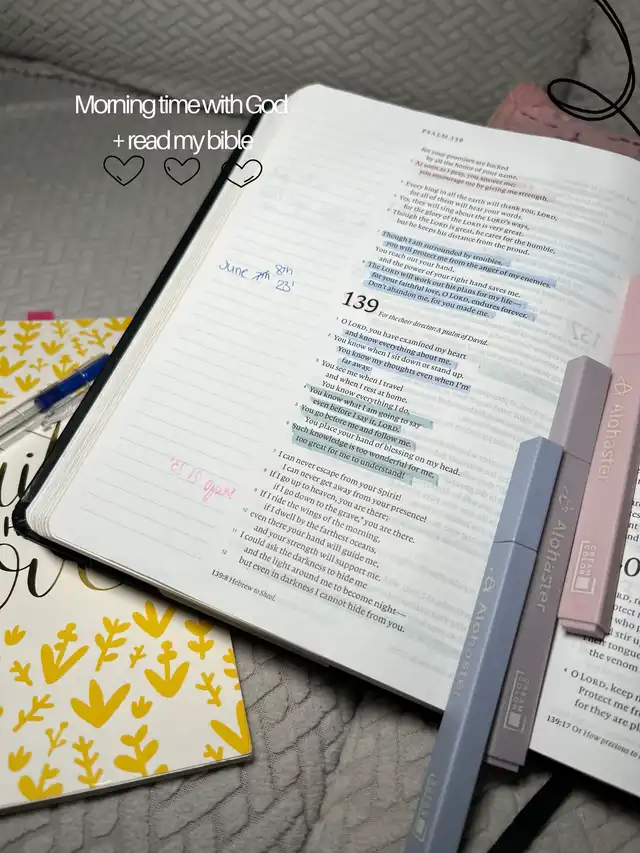 Morning time with God
+ read my bible
PSALM 138
for your promises are backed
by all the honor of your name.
As soon as I pray, you answer me;
you encourage me by giving me strength.
Every king in all the earth will thank you, LORD,
for all of them will hear your words.
Yes, they will sing about the LORD's ways,
for the glory of the LORD is very great.
Though the LORD is great, he cares for the humble,
but he keeps his distance from the proud.
Though I am surrounded by troubles,
you will protect me from the anger of my enemies.
You reach out your hand,
and the power of your right hand saves me.
The LORD will work out his plans for my life—
for your faithful love, O LORD, endures forever.
Don't abandon me, for you made me.
June 8th
23'
139
For the choir director: A psalm of David.
1 O LORD, you have examined my heart
and know everything about me.
2 You know when I sit down or stand up.
You know my thoughts even when I'm
far away.
3 You see me when I travel
and when I rest at home.
You know everything I do.
4 You know what I am going to say
even before I say it, LORD.
5 You go before me and follow me.
You place your hand of blessing on my head.
6 Such knowledge is too wonderful for me,
too great for me to understand!
7 I can never escape from your Spirit!
I can never get away from your presence!
8 If I go up to heaven, you are there;
if I go down to the grave,* you are there.
9 If I ride the wings of the morning,
if I dwell by the farthest oceans,
10 even there your hand will guide me,
and your strength will support me.
11 I could ask the darkness to hide me
and the light around me to become night—
12 but even in darkness I cannot hide from you.
139:8 Hebrew to Sheol.
Alohaster
CREAM
COLOR
Alohaster
CREAM
COLOR
Alohaster
the venom
O LORD, keep
Protect me fr
for they are pl
139:17 Or How precious to